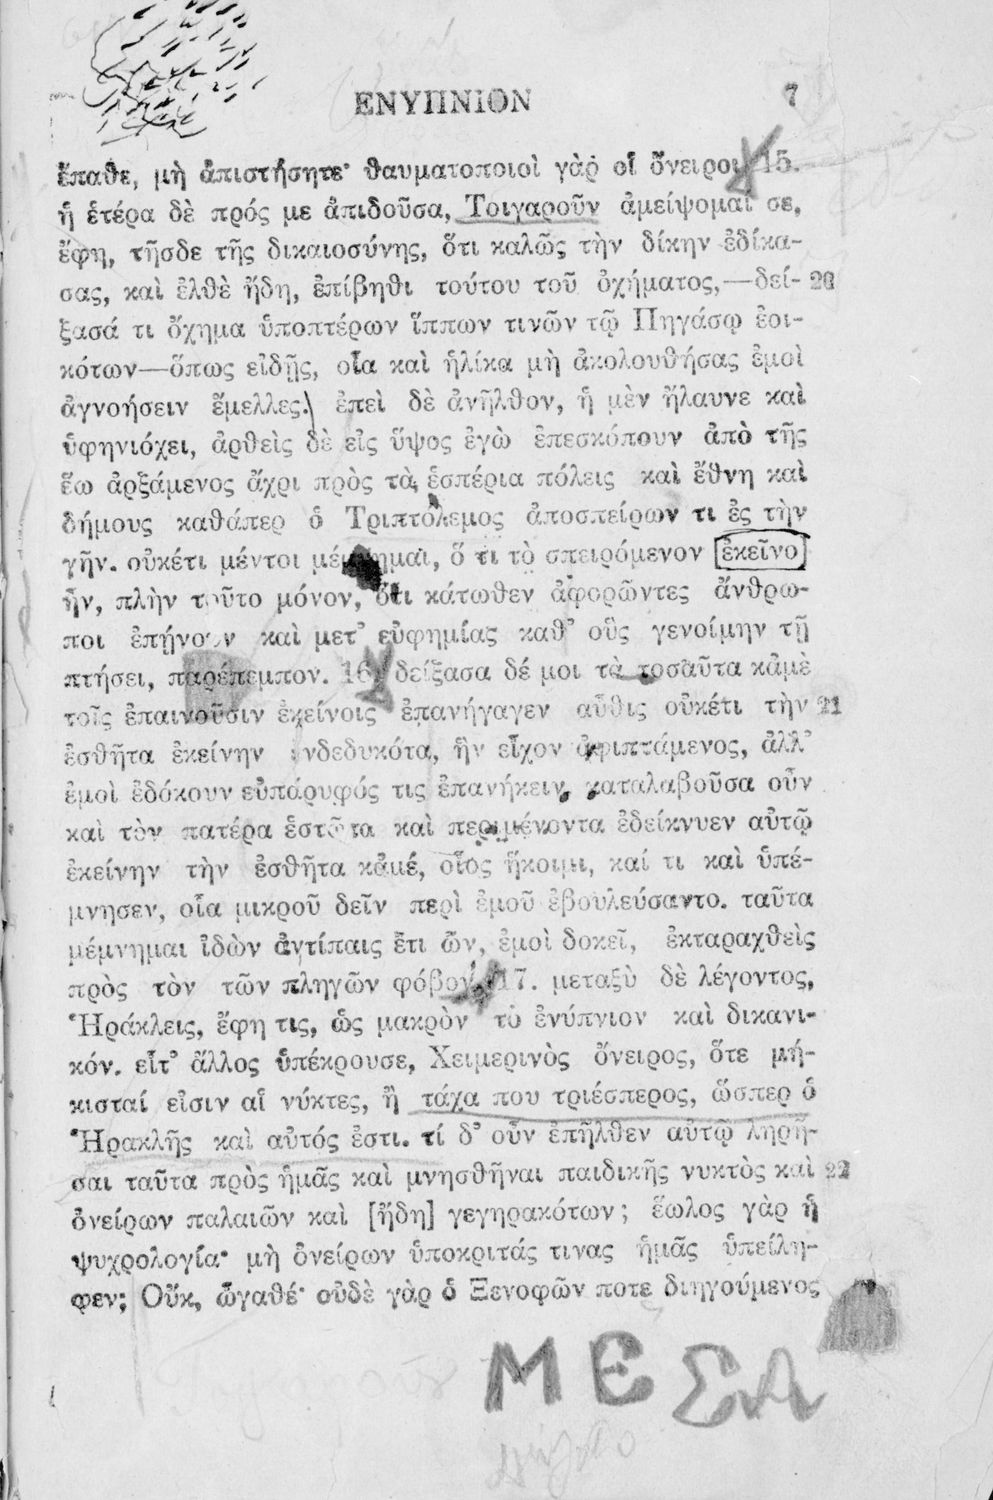 ΕΝΥΠΝΙΟΝ 7
ἔπαθε, μὴ ἀπιστήσητε· θαυματοποιοὶ γὰρ οἱ ὄνειροι 15.
ἡ ἑτέρα δὲ πρός με ἀπιδοῦσα, Τοιγαροῦν ἀμείψομαί σε,
ἔφη, τῆσδε τῆς δικαιοσύνης, ὅτι καλῶς τὴν δίκην ἐδίκα-
σας, καὶ ἐλθὲ ἤδη, ἐπίβηθι τούτου τοῦ ὀχήματος,—δεί- 20
ξασά τι ὄχημα ὑποπτέρων ἵππων τινῶν τῷ Πηγάσῳ ἐοι-
κότων—ὅπως εἰδῇς, οἷα καὶ ἡλίκα μὴ ἀκολουθήσας ἐμοὶ
ἀγνοήσειν ἔμελλες. ἐπεὶ δὲ ἀνῆλθον, ἡ μὲν ἤλαυνε καὶ
ὑφηνιόχει, ἀρθεὶς δὲ εἰς ὕψος ἐγὼ ἐπεσκόπουν ἀπὸ τῆς
ἕω ἀρξάμενος ἄχρι πρὸς τὰ ἑσπέρια πόλεις καὶ ἔθνη καὶ
δήμους καθάπερ ὁ Τριπτόλεμος ἀποσπείρων τι ἐς τὴν
γῆν. οὐκέτι μέντοι μέμνημαι, ὅ τι τὸ σπειρόμενον ἐκεῖνο
ἦν, πλὴν τοῦτο μόνον, ὅτι κάτωθεν ἀφορῶντες ἄνθρω-
ποι ἐπῄνουν καὶ μετ' εὐφημίας καθ' οὓς γενοίμην τῇ
πτήσει, παρέπεμπον. 16. δείξασα δέ μοι τὰ τοσαῦτα κἀμὲ
τοῖς ἐπαινοῦσιν ἐκείνοις ἐπανήγαγεν αὖθις οὐκέτι τὴν 21
ἐσθῆτα ἐκείνην ἐνδεδυκότα, ἣν εἶχον ἀφιπτάμενος, ἀλλ'
ἐμοὶ ἐδόκουν εὐπάρυφός τις ἐπανήκειν. καταλαβοῦσα οὖν
καὶ τὸν πατέρα ἑστῶτα καὶ περιμένοντα ἐδείκνυεν αὐτῷ
ἐκείνην τὴν ἐσθῆτα κἀμέ, οἷος ἥκοιμι, καί τι καὶ ὑπέ-
μνησεν, οἷα μικροῦ δεῖν περὶ ἐμοῦ ἐβουλεύσαντο. ταῦτα
μέμνημαι ἰδὼν ἀντίπαις ἔτι ὤν, ἐμοὶ δοκεῖ, ἐκταραχθεὶς
πρὸς τὸν τῶν πληγῶν φόβον. 17. μεταξὺ δὲ λέγοντος,
Ἡράκλεις, ἔφη τις, ὡς μακρὸν τὸ ἐνύπνιον καὶ δικανι-
κόν. εἶτ' ἄλλος ὑπέκρουσε, Χειμερινὸς ὄνειρος, ὅτε μή-
κισταί εἰσιν αἱ νύκτες, ἢ τάχα που τριέσπερος, ὥσπερ ὁ
Ἡρακλῆς καὶ αὐτός ἐστι. τί δ' οὖν ἐπῆλθεν αὐτῷ ληρῆ-
σαι ταῦτα πρὸς ἡμᾶς καὶ μνησθῆναι παιδικῆς νυκτὸς καὶ 22
ὀνείρων παλαιῶν καὶ [ἤδη] γεγηρακότων; ἕωλος γὰρ ἡ
ψυχρολογία· μὴ ὀνείρων ὑποκριτάς τινας ἡμᾶς ὑπείλη-
φεν; Οὔκ, ὦγαθέ· οὐδὲ γὰρ ὁ Ξενοφῶν ποτε διηγούμενος
ΜΕΣΑ